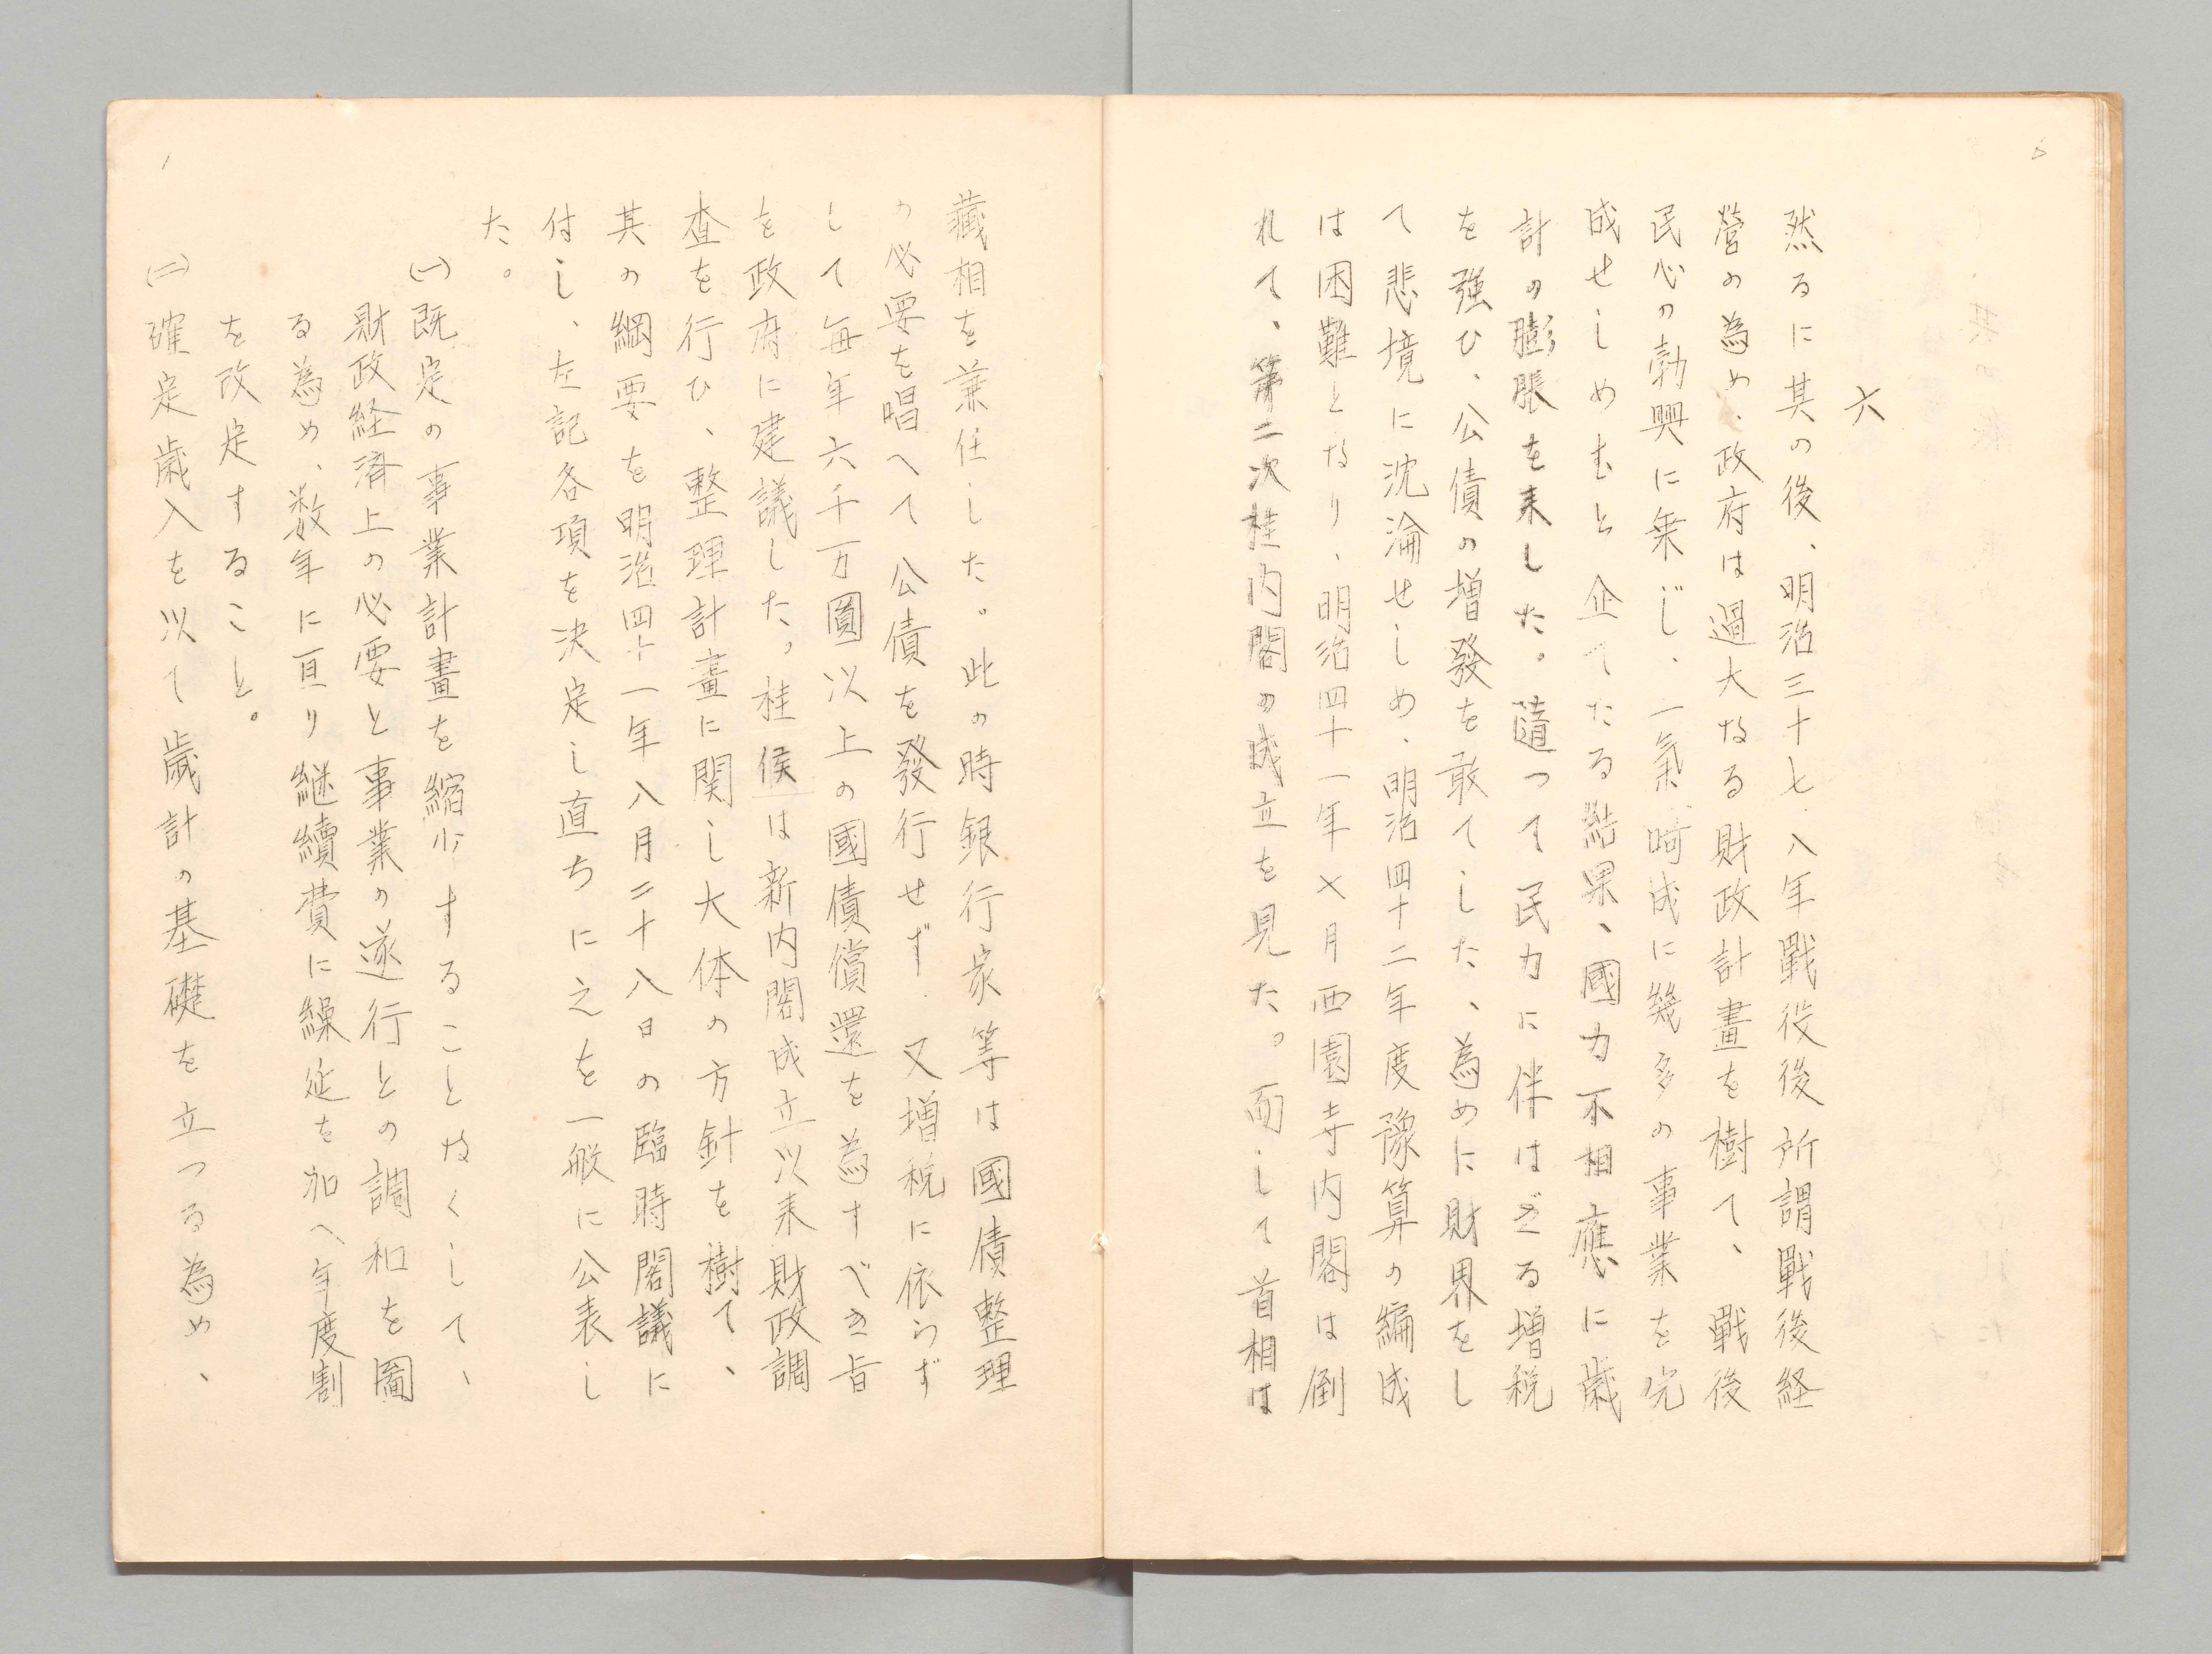 六
然るに其の後、明治三十七、八年戰役後所謂戰後経
營の為め、政府は過大なる財政計畫を樹て、戰後
民心の勃興に乗じ、一氣呵成に幾多の事業を完
成せしめむと企てたる結果、國力不相應に歳
計の膨脹を来した。隨つて民力に伴はざる増税
を強ひ、公債の増發を敢てした、為めに財界をし
て悲境に沈淪せしめ、明治四十二年度豫算の編成
は困難となり、明治四十一年七月西園寺内閣は倒
れて、第二次桂内閣の成立を見た。而して首相は
藏相を兼任した。此の時銀行家等は國債整理
の必要を唱へて公債を發行せず、又増税に依らず
して毎年六千万圓以上の國債償還を為すべき旨
を政府に建議した。桂侯は新内閣成立以来財政調
査を行ひ、整理計畫に関し大体の方針を樹て、
其の綱要を明治四十一年八月二十八日の臨時閣議に
付し、左記各項を決定し直ちに之を一般に公表し
た。
(一)既定の事業計畫を縮少することなくして、
財政経済上の必要と事業の遂行との調和を圖
る為め、数年に亘り継續費に繰延を加へ年度割
を改定すること。
(二)確定歳入を以て歳計の基礎を立つる為め、